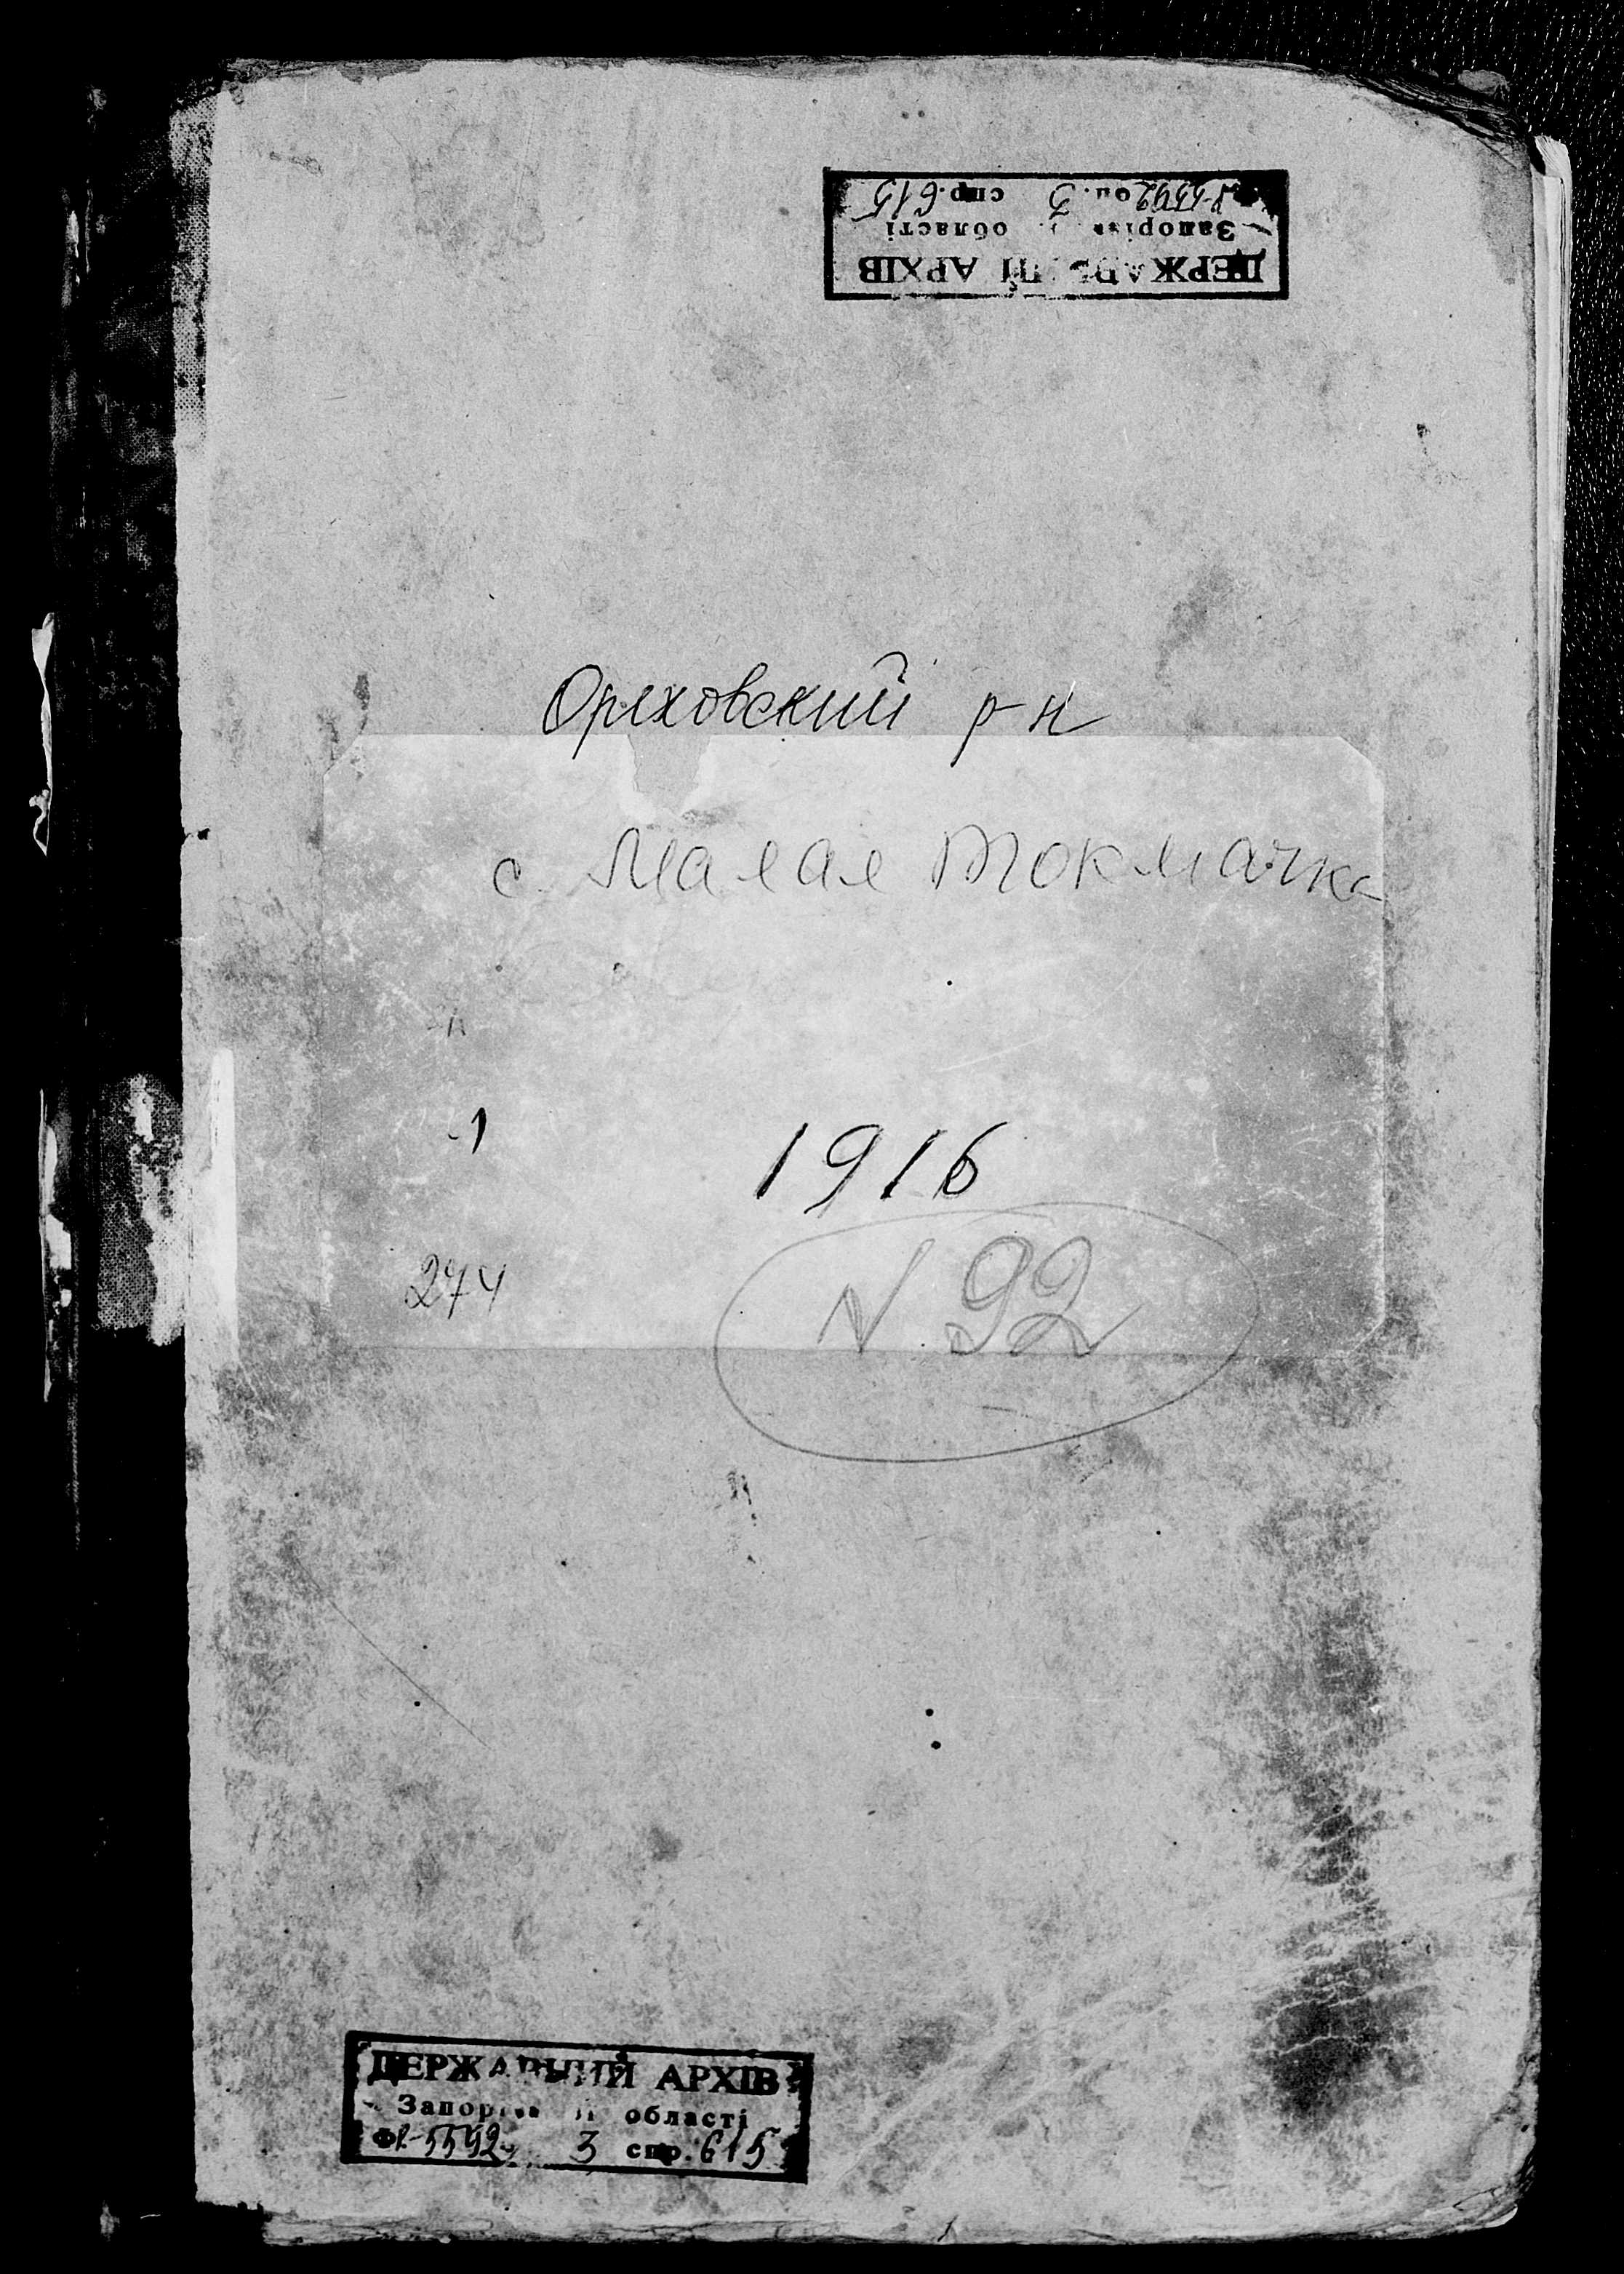 ДЕРЖАВНИЙ АРХІВ
Запорізької області
Р-5592 оп. 3 спр. 615
Ореховский р-н
с. Малая Токмачка
1
1916
274
N 92
ДЕРЖАВНИЙ АРХІВ
Запорізької області
ФР-5592 3 спр. 615